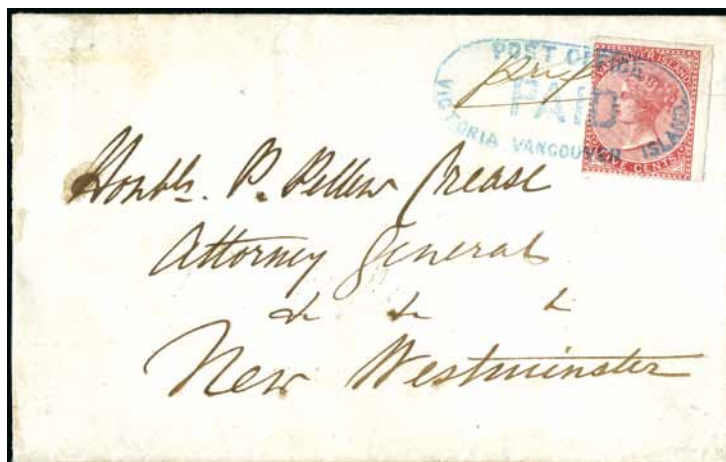 POST OFFICE
PAID
VICTORIA VANCOUVER ISLAND.
VANCOUVER ISLAND
FIVE CENTS
Honble. P. Pellew Crease
Attorney General
& & &
New Westminster